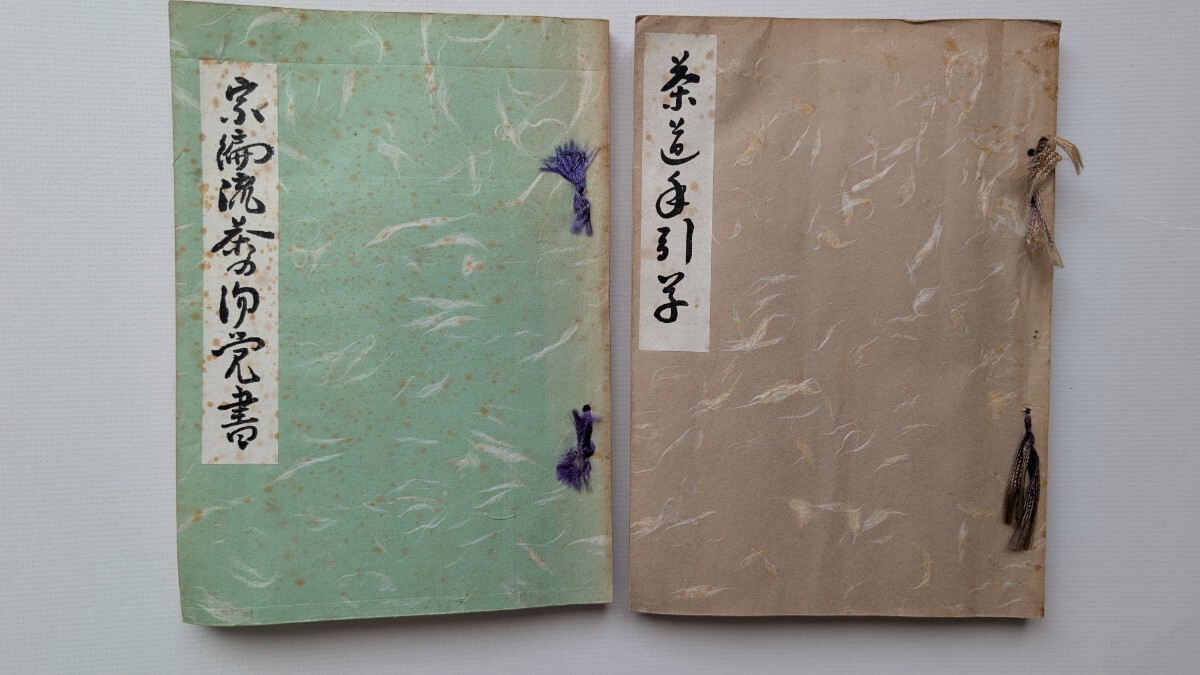 宗徧流茶の湯覚書
茶道手引草